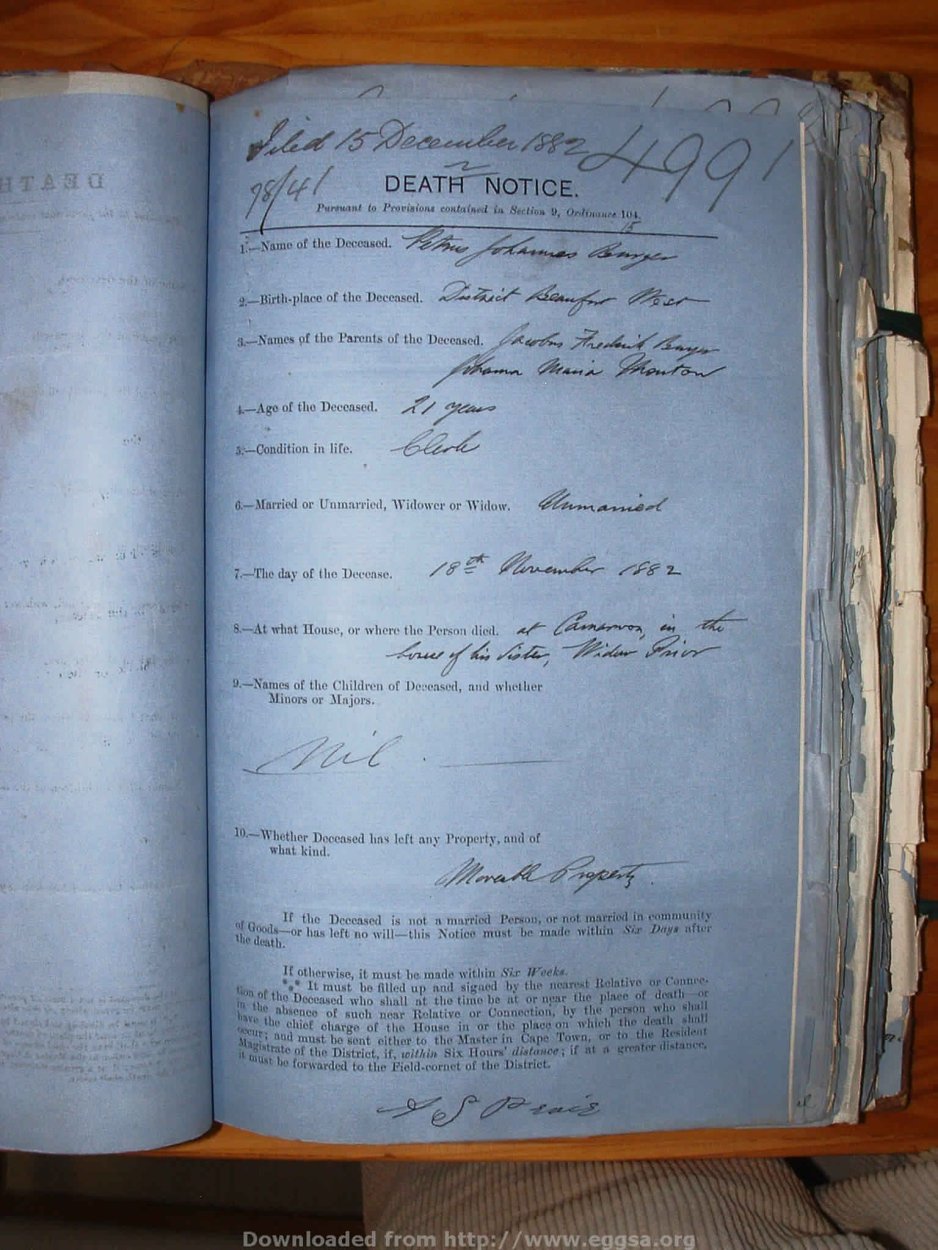 Filed 15 December 1882 4991
78/41
DEATH NOTICE.
Pursuant to Provisions contained in Section 9, Ordinance 104.
15
1.—Name of the Deceased. Petrus Johannes Burger
2.—Birth-place of the Deceased. District Beaufort West
3.—Names of the Parents of the Deceased. Jacobus Frederik Burger
Johanna Maria Mouton
4.—Age of the Deceased. 21 years
5.—Condition in life. Clerk
6.—Married or Unmarried, Widower or Widow. Unmarried
7.—The day of the Decease. 18th November 1882
8.—At what House, or where the Person died. at Carnarvon, in the
house of his Sister, Widow Prior
9.—Names of the Children of Deceased, and whether
Minors or Majors.
Nil.
10.—Whether Deceased has left any Property, and of
what kind.
Moveable Property.
If the Deceased is not a married Person, or not married in community
of Goods—or has left no will—this Notice must be made within Six Days after
the death.
If otherwise, it must be made within Six Weeks.
*** It must be filled up and signed by the nearest Relative or Connec-
tion of the Deceased who shall at the time be at or near the place of death—or
in the absence of such near Relative or Connection, by the person who shall
have the chief charge of the House in or the place on which the death shall
occur; and must be sent either to the Master in Cape Town, or to the Resident
Magistrate of the District, if, within Six Hours' distance; if at a greater distance,
it must be forwarded to the Field-cornet of the District.
Downloaded from http://www.eggsa.org